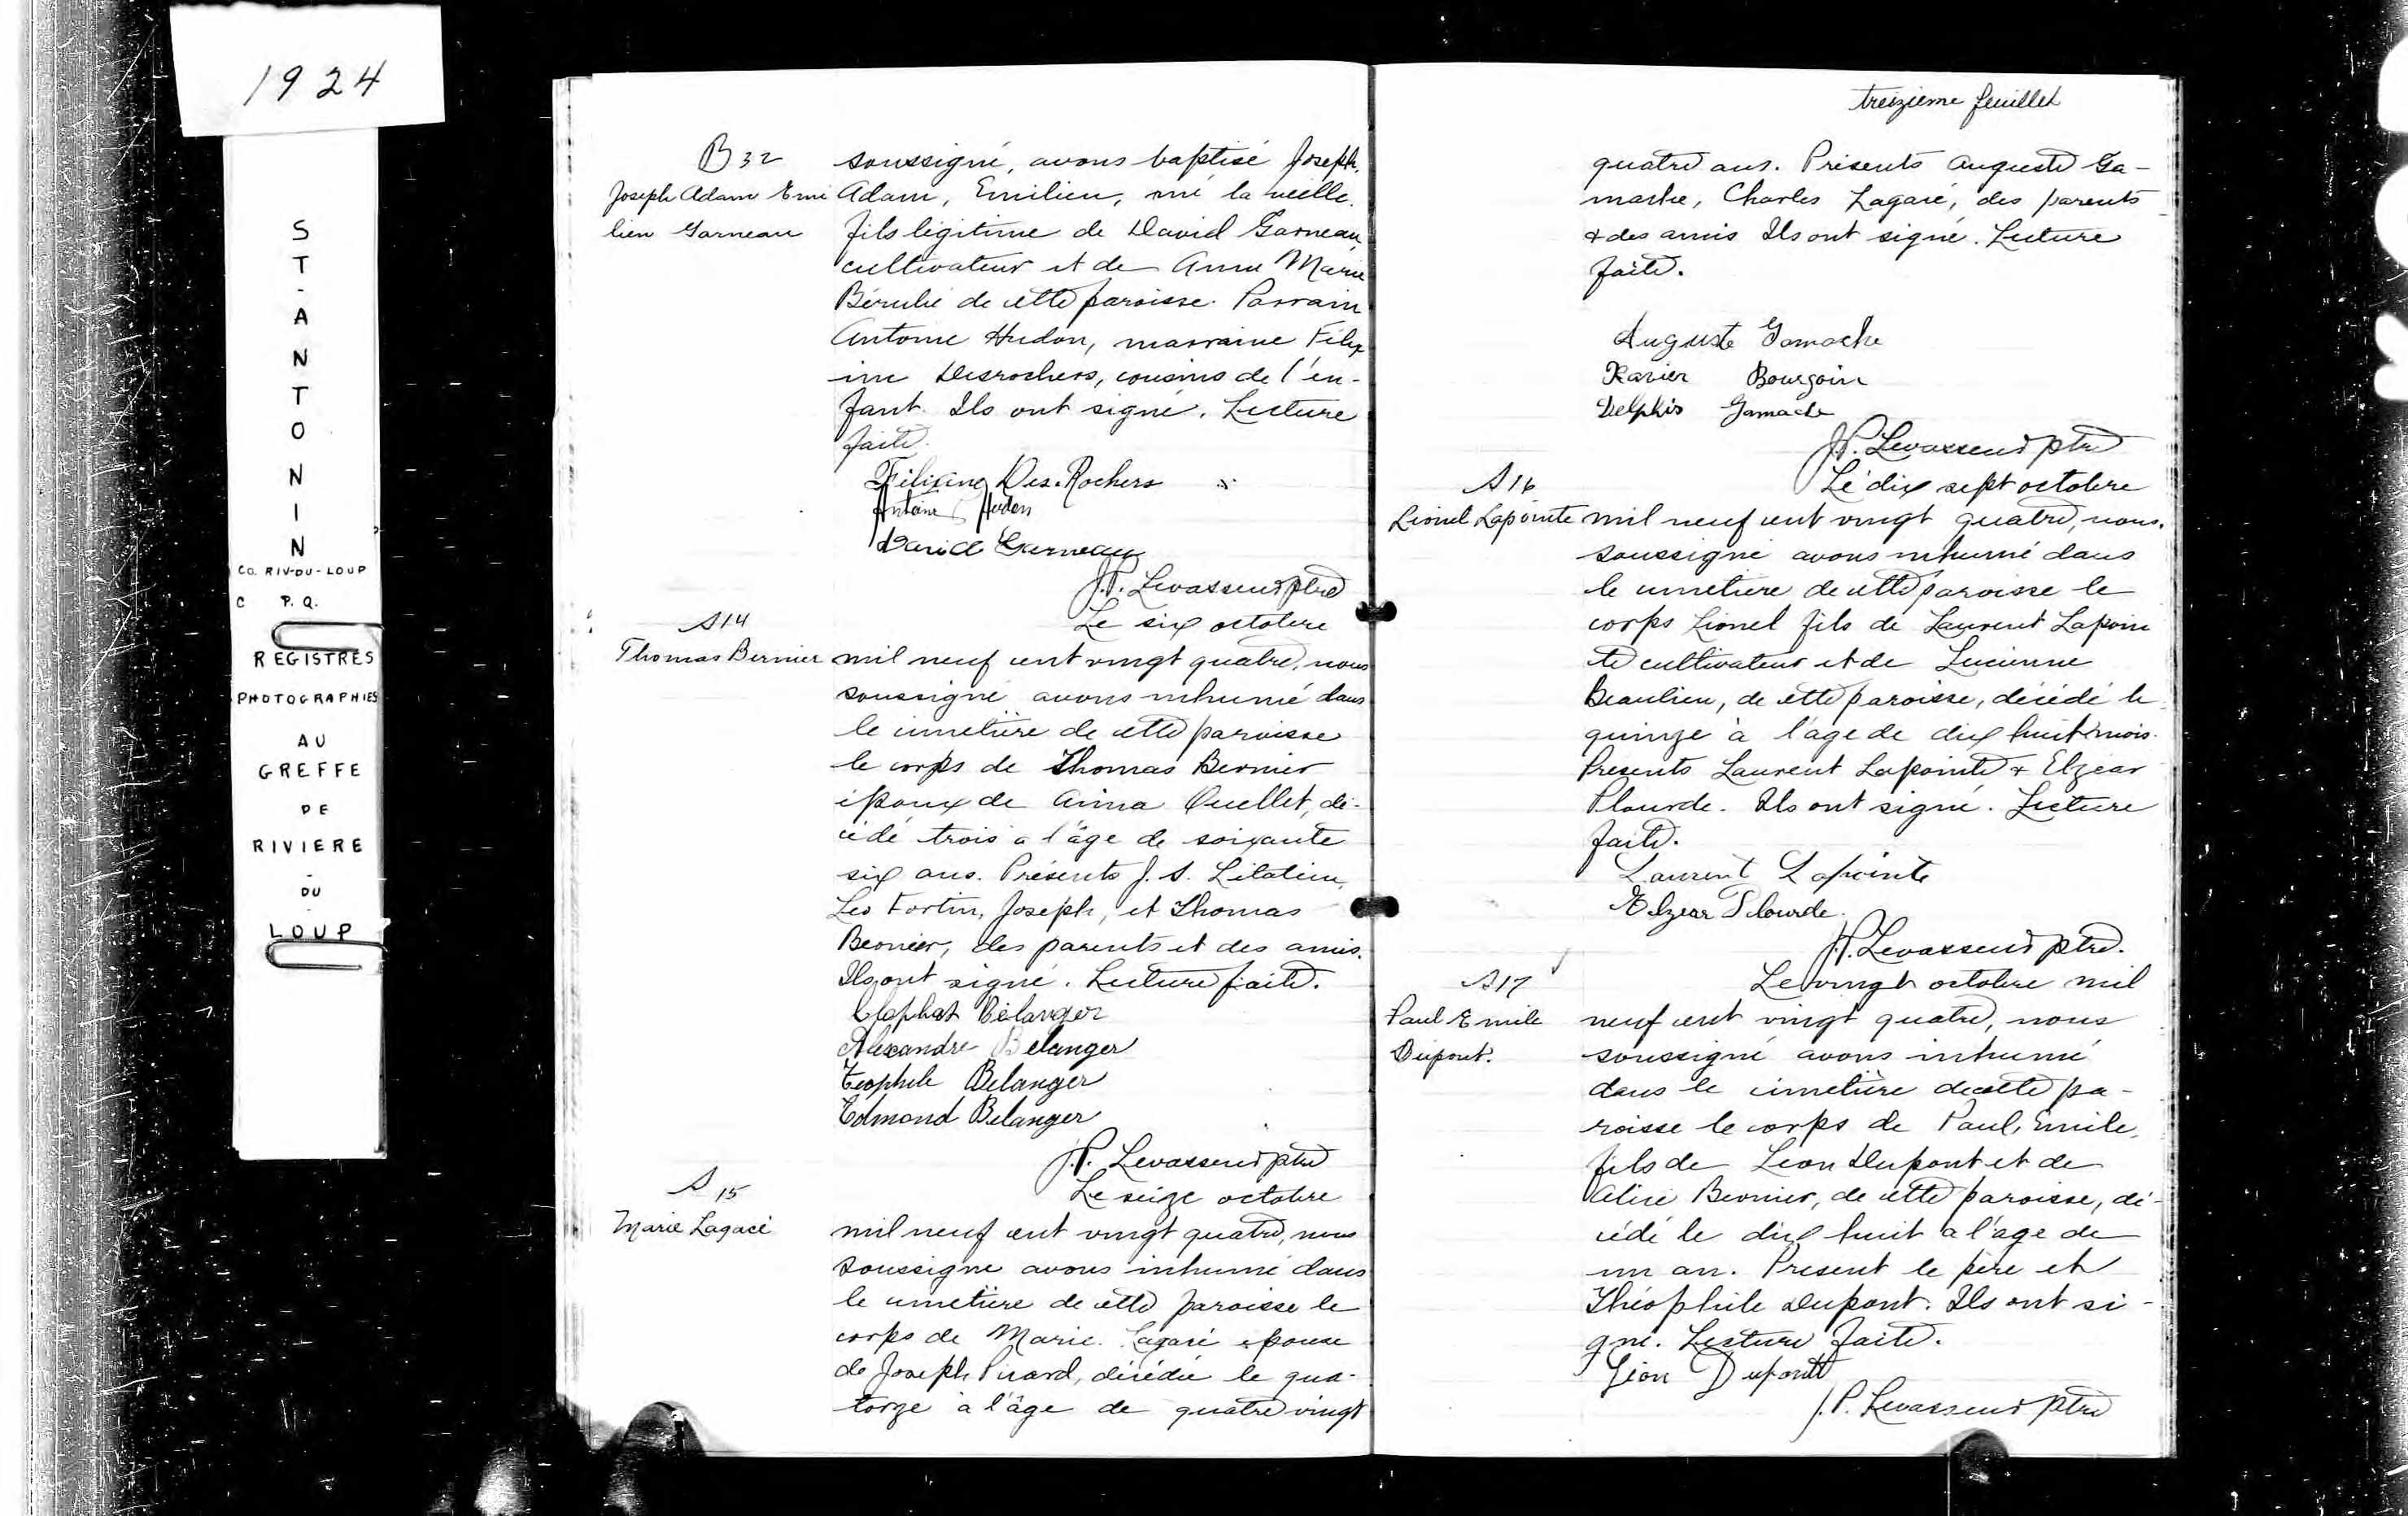 1924
ST-ANTONIN
CO. RIV-DU-LOUP
C P.Q.
REGISTRES
PHOTOGRAPHIES
AU
GREFFE
DE
RIVIERE
-
DU
-
LOUP
B 32
Joseph Adam Emi
lien Garneau
soussigné, avons baptisé Joseph,
Adam, Emilien, né la veille.
fils légitime de David Garneau,
cultivateur et de Anna Marie
Bérubé de cette paroisse. Parrain
Antoine Hudon, marraine Félix
ine Desrochers, cousins de l'en-
fant. Ils ont signé. Lecture
faite.
Felixine Des.Rochers
Antoine Hudon
David Garneau
J.P. Levasseur ptre
S14
Thomas Bernier
Le six octobre
mil neuf cent vingt quatre, nous
soussigné avons inhumé dans
le cimetière de cette paroisse
le corps de Thomas Bernier
époux de Anna Ouellet, dé-
cédé trois a l'âge de soixante
six ans. Présents J. S.
Léo Fortin, Joseph, et Thomas
Bernier, des parents et des amis.
Ils ont signé. Lecture faite.
Bélanger
Alexandre Belanger
Teophile Belanger
Edmond Belanger
J.P. Levasseur ptre
S 15
Marie Lagacé
Le seize octobre
mil neuf cent vingt quatre, nous
soussigné avons inhumé dans
le cimetière de cette paroisse le
corps de Marie. Lagacé épouse
de Joseph Picard, décédée le qua-
torze à l'âge de quatre vingt
treizieme feuillet
quatre ans. Présents Auguste Ga-
mache, Charles Lagacé, des parents
& des amis Ils ont signé. Lecture
faite.
Auguste Gamache
Xavier Bourgoin
Delphis Gamache
J.P. Levasseur ptre
S16
Lionel Lapointe
Le dix sept octobre
mil neuf cent vingt quatre, nous,
soussigné avons inhumé dans
le cimetiere de cette paroisse le
corps Lionel fils de Laurent Lapoin
te cultivateur et de Lucienne
Beaulieu, de cette paroisse, décédé le
quinze à l'âge de dix huit mois.
Presents Laurent Lapointe & Elzear
Plourde. Ils ont signé. Lecture
faite.
Laurent Lapointe
Elzear Plourde.
J.P. Levasseur ptre.
S17
Paul Emile
Dupont.
Le vingt octobre mil
neuf cent vingt quatre, nous
soussigné avons inhumé
dans le cimetière de cette pa-
roisse le corps de Paul, Emile,
fils de Léon Dupont et de
Alice Bernier, de cette paroisse, dé-
cédé le dix huit a l'age de
un an. Present le père et
Théophile Dupont. Ils ont si-
gné. Lecture faite.
Léon Dupont
J.P. Levasseur ptre